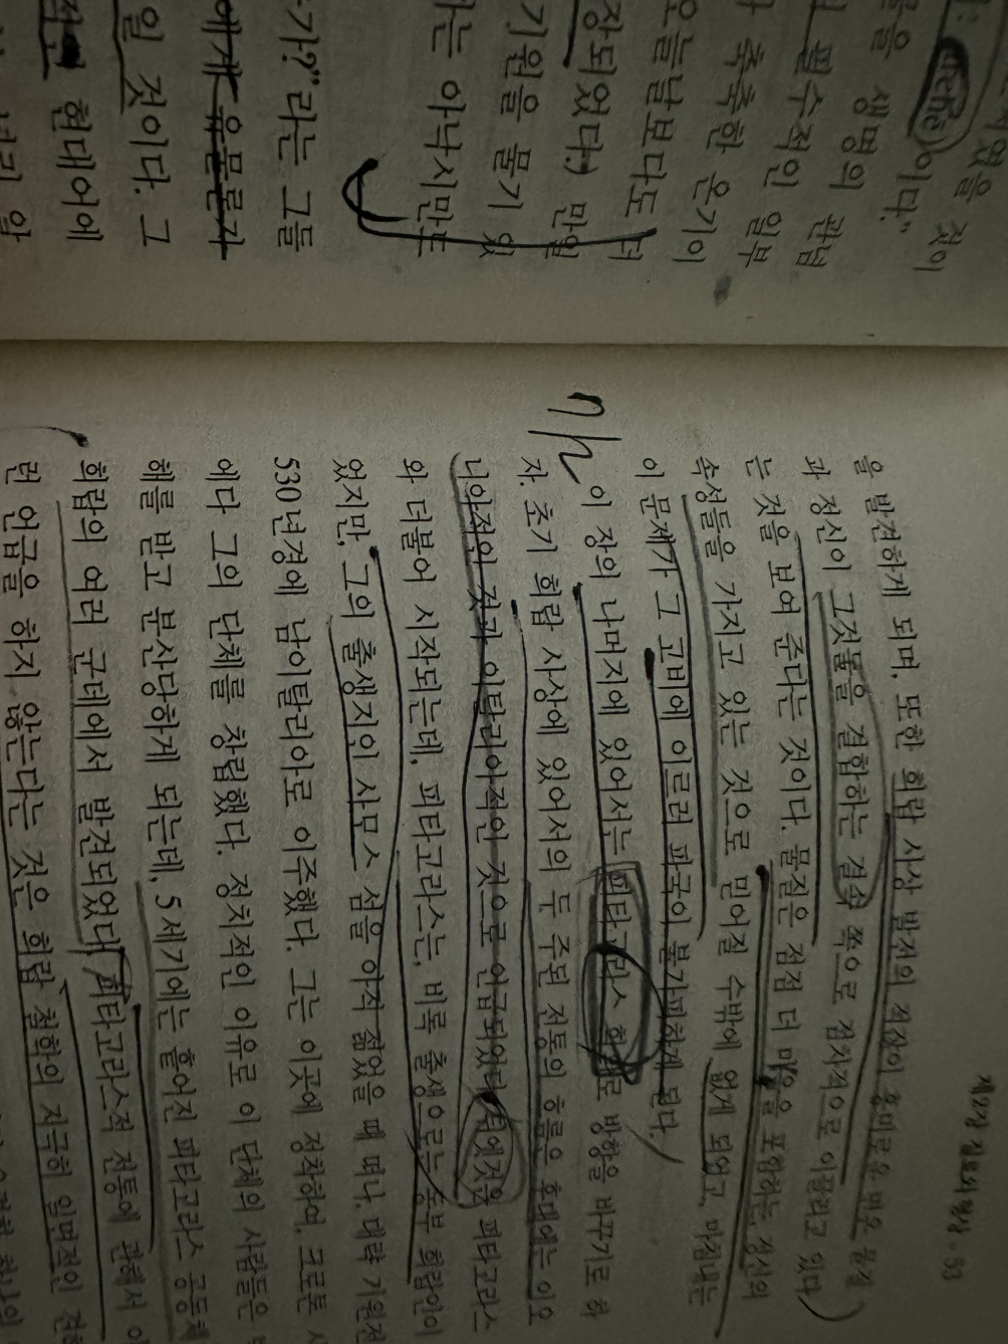 었을 것이
(archē)이다.”
들을 생명의 관념
필수적인 일부
축축한 온기이
오늘날보다도 더
장되었다.) 만일
기원을 물기 있
는 아낙시만드
가?”라는 그들
에게 유물론자
일 것이다. 그
현대어에
제2장 질료와 형상·53
을 발견하게 되며, 또한 희랍 사상 발전의 적상이 흥미로운
과 정신이 그것물을 결합하는 결속 쪽으로 점차적으로 이끌리고 있다
는 것을 보여 준다는 것이다. 물질은 점점 더 마음을 포함하는, 정신의
속성들을 가지고 있는 것으로 믿어질 수밖에 없게 되었고, 마침내는
이 문제가 그 고비에 이르러 파국이 불가피하게 된다.
이 장의 나머지에 있어서는 피타고라스 학파로 방향을 바꾸기로 하
자. 초기 희랍 사상에 있어서의 두 주된 전통의 흐름은 후대에는 이오
니아적인 것과 이탈리아적인 것으로 언급되었다. 뒤엣것은 피타고라스
와 더불어 시작되는데, 피타고라스는, 비록 출생으로는 동부 희랍인이
었지만, 그의 출생지인 사모스 섬을 아직 젊었을 때 떠나, 대략 기원전
530년경에 남이탈리아로 이주했다. 그는 이곳에 정착하여, 크로톤
에다 그의 단체를 창립했다. 정치적인 이유로 이 단체의 사람들은
해를 받고 분산당하게 되는데, 5세기에는 흩어진 피타고라스 공동체
희랍의 여러 군데에서 발견되었다. 피타고라스적 전통에 관해서
런 언급을 하지 않는다는 것은 희랍 철학의 지극히 일면적인